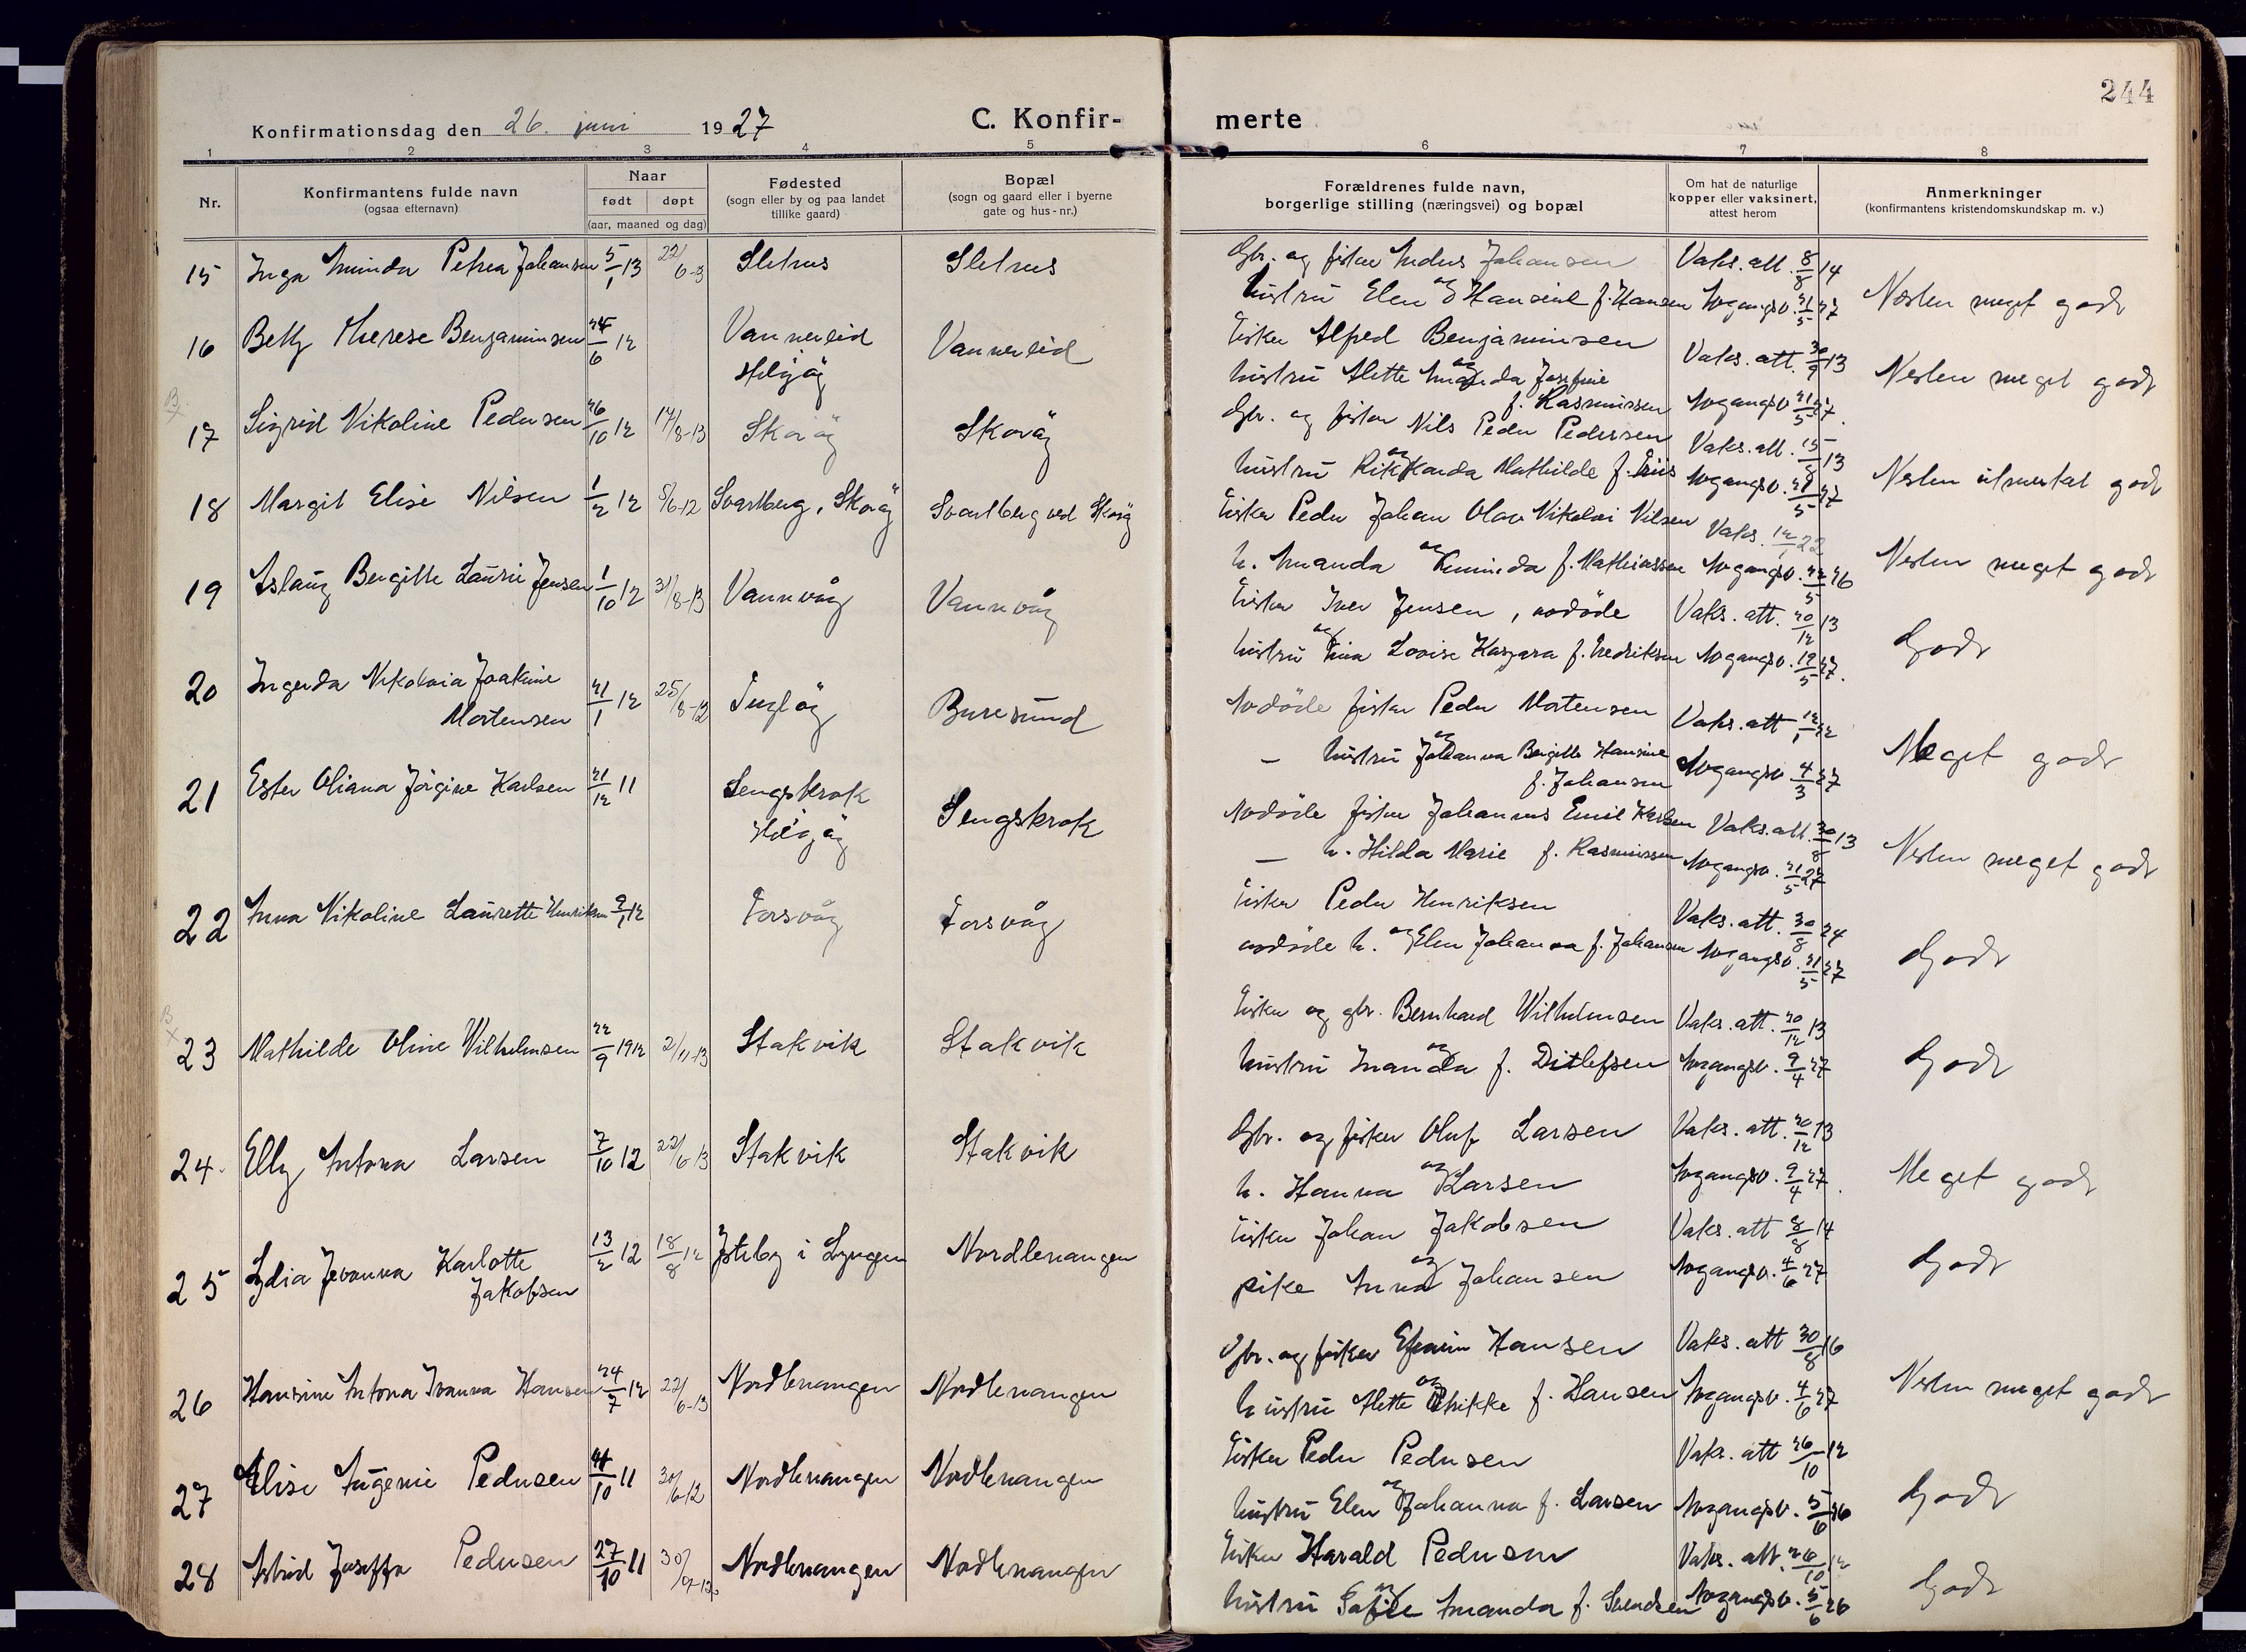 244
Konfirmationsdag den 26. juni 1927
C. Konfir-
merte
1 2 3 4 5 6 7 8
Nr.
Konfirmantens fulde navn
(ogsaa efternavn)
Naar
født døpt
(aar, maaned og dag)
Fødested
(sogn eller by og paa landet
tillike gaard)
Bopæl
(sogn og gaard eller i byerne
gate og hus-nr.)
Forældrenes fulde navn,
borgerlige stilling (næringsvei) og bopæl
Om hat de naturlige
kopper eller vaksinert,
attest herom
Anmerkninger
(konfirmantens kristendomskundskap m. v.)
15 Inga Aminda Petrea Johansen 5/1 13 22/6-13 Sletnes Sletnes
Gbr. og fisker Anders Johansen Vaks. att. 8/8 14
hustru Elen og Hansine f. Hansen Avgangsv. 21/5 27 Nesten meget godt
16 Betty Therese Benjaminsen 24/6 12 Vannereid Helgøy Vannereid
Fisker Alfred Benjaminsen Vaks. att. 30/9 13
hustru Alette og Amanda Josefine
f. Rasmussen Avgangsv. 21/5 27. Nesten meget godt
17 Sigrid Nikoline Pedersen 26/10 12 17/8-13 Skorøy Skorøy
Gbr. og fisker Nils Peder Pedersen Vaks. att. 15/8 13
hustru og Rikkarda Mathilde f. Friis Avgangsv. 28/5 27 Nesten utmerket godt
18 Margit Elise Nilsen 1/2 12 8/6-12 Svartberg, Skorøy Svartberg ved Skorøy
Fisker Peder Johan Olav Nikolai Nilsen Vaks. 12/1 22
h. Amanda og Kaminda f. Mathiassen Avgangsv. 22/5 26 Nesten meget godt
19 Aslaug Bergitte Laurie Jensen 1/10 12 31/8-13 Vannvåg Vannvåg
Fisker Iver Jensen, avdøde Vaks. att. 20/12 13
hustru og Lovise Kaspara f. Fredriksen Avgangsv. 19/5 27. Godt
20 Ingerda Nikolaia Joakime
Mortensen 21/1 12 25/8-12 Fugløy Buresund
Avdøde fisker Peder Mortensen Vaks. att 12/1 22
— hustru og Johanna Bergitte Hansine
f. Johansen Avgangsv. 4/3 27 Meget godt
21 Ester Oliana Jørgine Karlsen 21/12 11 Lengskrok Helgøy Lengskrok
Avdøde fisker Johannes Emil Karlsen Vaks. att. 30/8 13
— h. Hilda Marie f. Rasmussen Avgangsv. 21/5 27 Nesten meget godt
22 Anna Nikoline Laurette Henriksen 9/1 12 Torsvåg Torsvåg
Fisker Peder Henriksen Vaks. att. 30/8 24
avdøde h. og Elen Johanna f. Johansen Avgangsv. 21/5 27 Godt
23 Mathilde Oline Wilhelmsen 22/9 1912 2/11-13 Stakvik Stakvik
Fisker og gbr. Bernhard Wilhelmsen Vaks. att. 20/12 13
hustru og Inanda f. Ditlefsen Avgangsv. 9/4 27 Godt
24. Elly Antona Larsen 7/10 12 22/6-13 Stakvik Stakvik
Gbr. og fisker Oluf Larsen Vaks. att. 20/12 13
h. Hanna og Larsen Avgangsv. 9/4 27. Meget godt
25 Lydia Jevanna Karlotte
Jakobsen 13/2 12 18/8 12 Isteby i Lyngen Nordlenangen
Fisker Johan Jakobsen Vaks. att 8/8 14
pike og Anna Johansen Avgangsv. 4/6 27 Godt
26 Hansine Antona Ivanna Hansen 24/7 12 22/6-13 Nordlenangen Nordlenangen
Gbr. og fisker Efraim Hansen Vaks. att 30/8 16
hustru Alette og Ulrikke f. Hansen Avgangsv. 4/6 27 Nesten meget godt
27 Elise Eugenie Pedersen 4/10 11 30/6-12 Nordlenangen Nordlenangen
Fisker Peder Pedersen Vaks. att 26/10 12
hustru Elen og Johanna f. Larsen Avgangsv. 5/6 26 Godt
28 Astrid Joseffa Pedersen 27/10 11 Nordlenangen Nordlenangen
Fisker Harald Pedersen Vaks. att. 26/10 12
hustru og Sofie Amanda f. Svendsen Avgangsv. 5/6 26 Godt